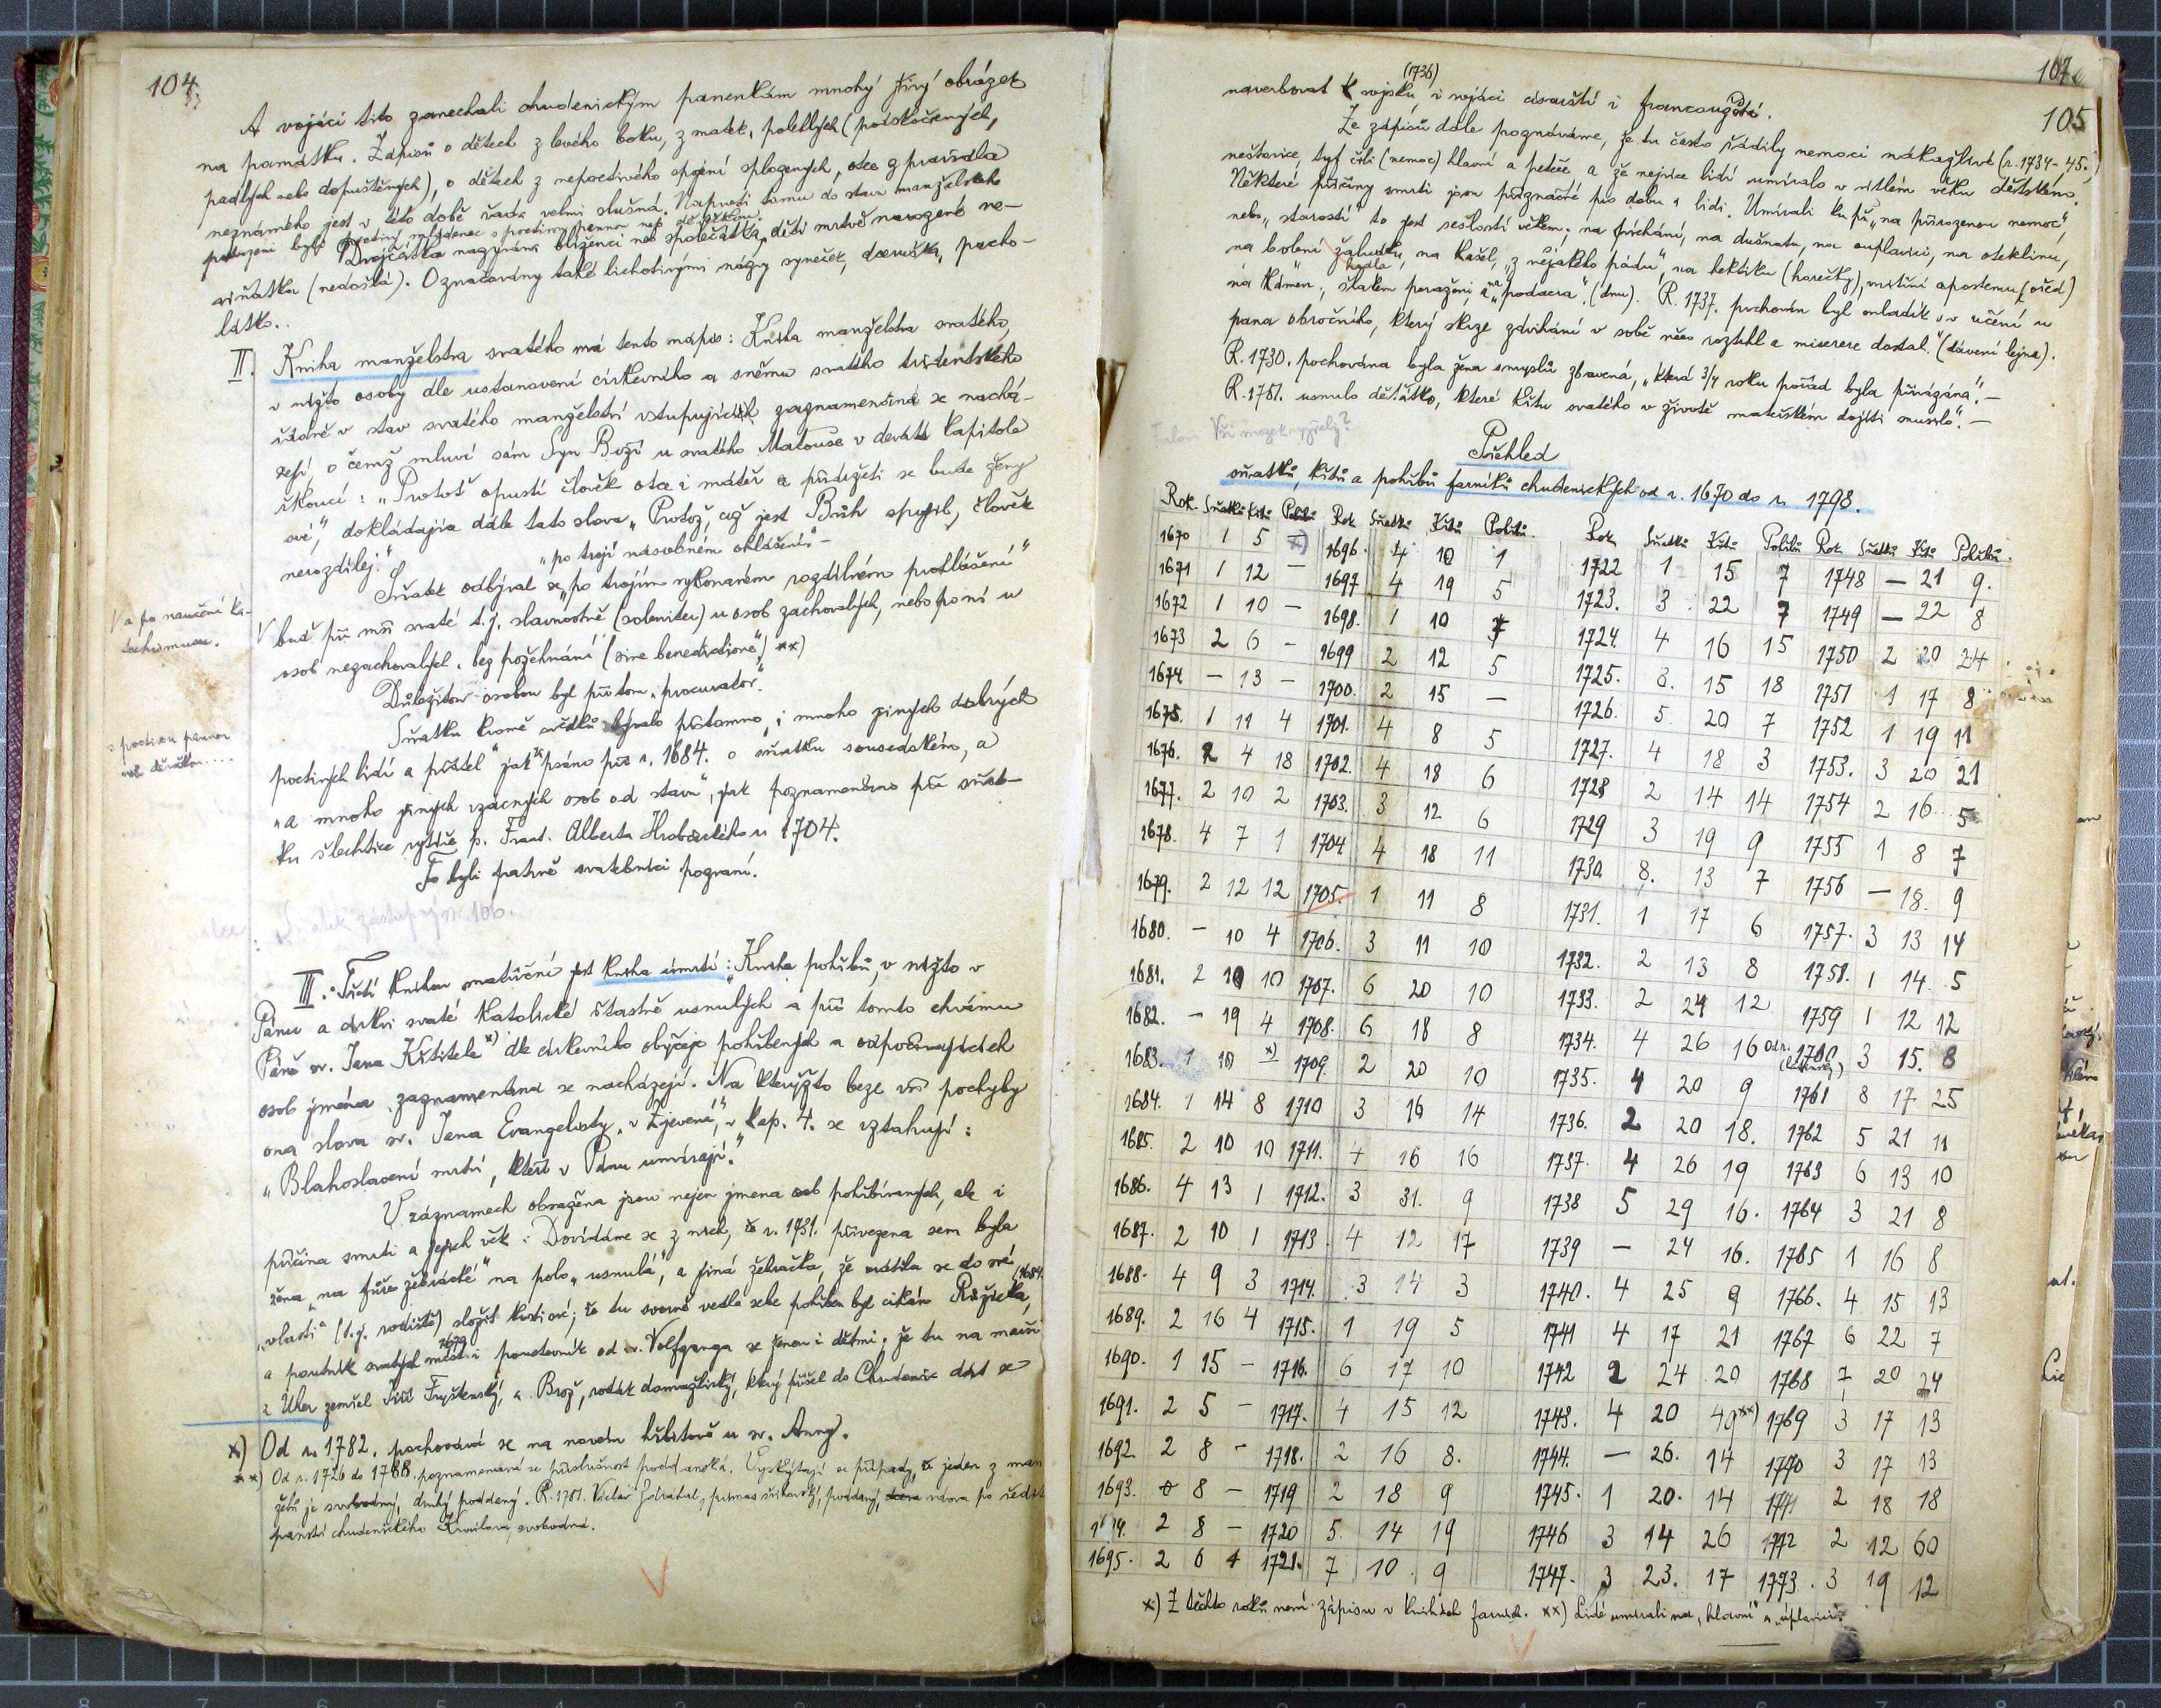 104
A vojáci tito zanechali chudenickým panenkám mnohý živý obrázek
na památku. Zápisů o dětech z levého boku, z matek, poběhlých (poskočených,
padlých nebo dopuštěných), o dětech z nepoctivého spojení splozených, otce z pravidla
neznámého jest v této době řada velmi slušná. Naproti tomu do stavu manželského
potvrzeni byli poctivý mládenec s poctivou pannou neb děvečkou.
Dvojčátka nazývána blíženci neb společátka, děti mrtvě narozené ne-
viňátka (nedošlá). Označovány také lichotivými názvy syneček, dceruška, pacho-
látko.
II. Kniha manželstva svatého má tento nápis: Kniha manželstva svatého,
v nížto osoby dle ustanovení církevního a sněmu svatého tridentského
řádně v stav svatého manželství vstupujících zaznamenána se nachá-
zejí, o čemž mluví sám Syn Boží u svatého Matouše v deváté kapitole
řkoucí: „Protož opustí člověk otce i máteř a přidržeti se bude ženy
své," dokládajíc dále tato slova „Protož, což jest Bůh spojil, člověk
nerozdílej."
„po trojí násobném ohlášení" –
Sňatek odbýval se „po trojím vykonaném rozdílném prohlášení"
V a po naučení ka-
techismu.
V buď při mši svaté t.j. slavnostně (solemniter) u osob zachovalých, nebo po ní u
osob nezachovalých, bez požehnání (sine benedictione)" **)
Důležitou osobou byl přitom „procurator".
Sňatku kromě svědků bývalo přítomno „i mnoho jiných dobrých
s poctivou pannou
neb děvečkou....
poctivých lidí a přátel" jak psáno při r. 1684. o sňatku sousedském, a
„a mnoho jiných vzácných osob od stavu", jak poznamenáno při sňat-
ku šlechtice rytíře p. Frant. Alberta Hrobčického r. 1704.
To byli patrně svatebníci pozvaní.
Sňatek zástupný str. 106.
III. Třetí knihou matriční jest kniha úmrtí: „Kniha pohřbů, v nížto v
Pánu a církvi svaté katolické šťastně usnulých a při tomto chrámu
Páně sv. Jana Křtitele x) dle církevního obyčeje pohřbených a odpočívajících
osob jména zaznamenána se nacházejí. Na kterýžto beze vší pochyby
ona slova sv. Jana Evangelisty „v Zjevení", v kap. 4. se vztahují:
„Blahoslavení mrtví, kteří v Pánu umírají."
V záznamech obražena jsou nejen jmena osob pohřbívaných, ale i
příčina smrti a jejich věk: Dovídáme se z nich, že r. 1731. přivezena sem byla
žena „na fůře žebrácké" na polo „usnulá", a jiná žebračka, že vrátila se do své
„vlasti" (t.j. rodiště) složit kosti své; že tu svorně vedle sebe pohřben byl cikán Růžička, (1684
a poutník svatých míst i poustevník od sv. Volfganga se ženou i dětmi; že tu na marši
1679
z Uher zemřel Jiří Fryštenský, a Brož, rodák domažlický, který přišel do Chudenic dát se
x) Od r. 1782. pochovává se na novém hřbitově u sv. Anny.
**) Od r. 1726 do 1788. poznamenává se příslušnost poddanská. Vyskýtají se případy, že jeden z man
želů je svobodný, druhý poddaný. R. 1781. Václav
panství chudenického svobodná.
107
105
(1736)
naverbovat k vojsku, i vojáci císařští i francouzští.
Ze zápisů dále poznáváme, že tu často řádily nemoci nákažlivé (r. 1734-45.)
neštovice, tyf čili (nemoc) hlavní a peteče a že nejvíce lidí umíralo v útlém věku dětském.
Některé příčiny smrti jsou příznačné pro dobu a lidi. Umírali ku př. „na přirozenou nemoc",
nebo „starostí" to jest sešlostí věkem; na píchání, na dušnotu, na ouplavici, na oteklinu,
na bolení žaludku, na kašel, „z nějakého pádu", na hektiku (horečky), vnitřní apostemu (vřed)
na kámen, šlakem poražení, a na „podagra" (dnu). R. 1737. pochován byl mladík v učení u
pana obročního, který skrze zdvihání v sobě něco roztrhl a miserere dostal." (dávení lejna).
R. 1730. pochována byla žena smyslů zbavená, „která 3/4 roku pořád byla přivázána". –
R. 1781. usnulo děťátko, které křtu svatého v životě mateřském dojíti muselo". –
Přehled
sňatků, křtů a pohřbů farníků chudenických od r. 1670 do r. 1798.
Rok. Sňatků Křtů Pohřbů Rok Sňatků Křtů Pohřbů. Rok Sňatků Křtů Pohřbů Rok Sňatků Křtů Pohřbů.
1670 1 5 – x) 1696. 4 10 1 1722 1 15 7 1748 – 21 9.
1671 1 12 – 1697 4 19 5 1723. 3 22 7 1749 – 22 8
1672 1 10 – 1698. 1 10 7 1724. 4 16 15 1750 2 20 24
1673 2 6 – 1699 2 12 5 1725. 8. 15 18 1751 1 17 8
1674 – 13 – 1700. 2 15 – 1726. 5 20 7 1752 1 19 11
1675. 1 11 4 1701. 4 8 5 1727. 4 18 3 1753. 3 20 21
1676. 2 4 18 1702. 4 18 6 1728 2 14 14 1754 2 16 5
1677. 2 10 2 1703. 3 12 6 1729 3 19 9 1755 1 8 7
1678. 4 7 1 1704 4 18 11 1730. 8. 13 7 1756 – 18. 9
1679. 2 12 12 1705. 1 11 8 1731. 1 17 6 1757. 3 13 14
1680. – 10 4 1706. 3 11 10 1732. 2 13 8 1758. 1 14 5
1681. 2 10 10 1707. 6 20 10 1733. 2 24 12 1759 1 12 12
1682. – 19 4 1708. 6 18 8 1734. 4 26 16 1760 3 15. 8
1683. 1 10 – x) 1709. 2 20 10 1735. 4 20 9 1761 8 17 25
1684. 1 14 8 1710 3 16 14 1736. 2 20 18. 1762 5 21 11
1685. 2 10 10 1711. 4 16 16 1737. 4 26 19 1763 6 13 10
1686. 4 13 1 1712. 3 31. 9 1738 5 29 16. 1764 3 21 8
1687. 2 10 1 1713. 4 12 17 1739 – 24 16. 1765 1 16 8
1688. 4 9 3 1714. 3 14 3 1740. 4 25 9 1766. 4 15 13
1689. 2 16 4 1715. 1 19 5 1741 4 17 21 1767 6 22 7
1690. 1 15 – 1716. 6 17 10 1742 2 24 20 1768 7 20 24
1691. 2 5 – 1717. 4 15 12 1743. 4 20 49 **) 1769 3 17 13
1692. 2 8 – 1718. 2 16 8. 1744. – 26. 14 1770 3 17 13
1693. 8 – 1719 2 18 9 1745. 1 20. 14 1771. 2 18 18
1694. 2 8 – 1720 5. 14 19 1746 3 14 26 1772 2 12 60
1695. 2 6 4 1721. 7 10 9 1747. 3 23. 17 1773. 3 19 12
x) Z těchto roků není zápisu v knihách farních. xx) Lidé umírali na „hlavní" a „úplavici".